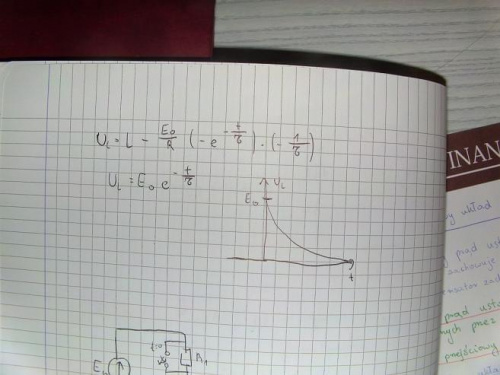 U_L = L - E₀/R (-e^(-t/τ)) · (-1/τ)
U_L = E₀ e^(-t/τ)
U_L
E₀
t
t=0
R₁
INAN
układ
prąd ust
zachowuje
prąd usta
nych przez
przejściowy